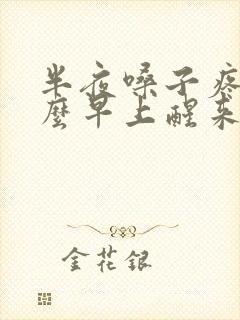 半夜嗓子疼
麼早上醒来
金花銀